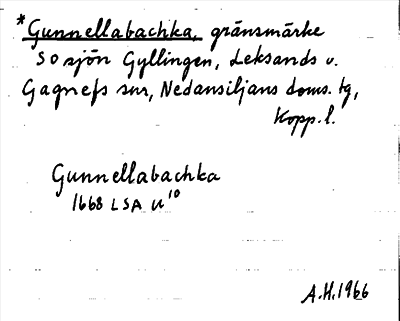 *Gunnellabachka, gränsmärke
SO sjön Gyllingen, Leksands o.
Gagnefs snr, Nedansiljans doms. tg,
Kopp. l.
Gunnellabachka
1668 LSA U¹⁰
A.H. 1966